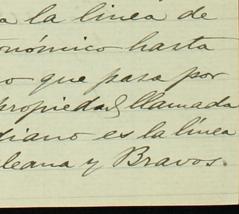 a la linea de
onómico hasta
o que pasa por
propiedad llamada
diano es la línea
leana y Bravos.